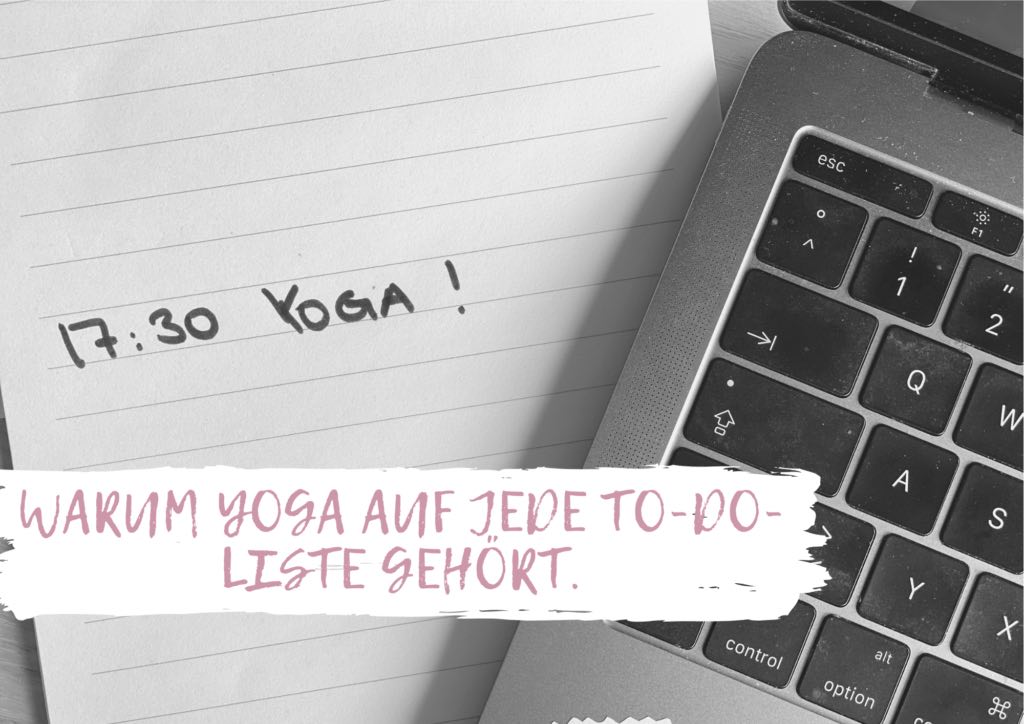 17:30 YOGA !
WARUM YOGA AUF JEDE TO-DO-
LISTE GEHÖRT.
esc
F1
° ^
! 1
" 2
Q
W
A
S
Y
X
control
alt
option
⌘